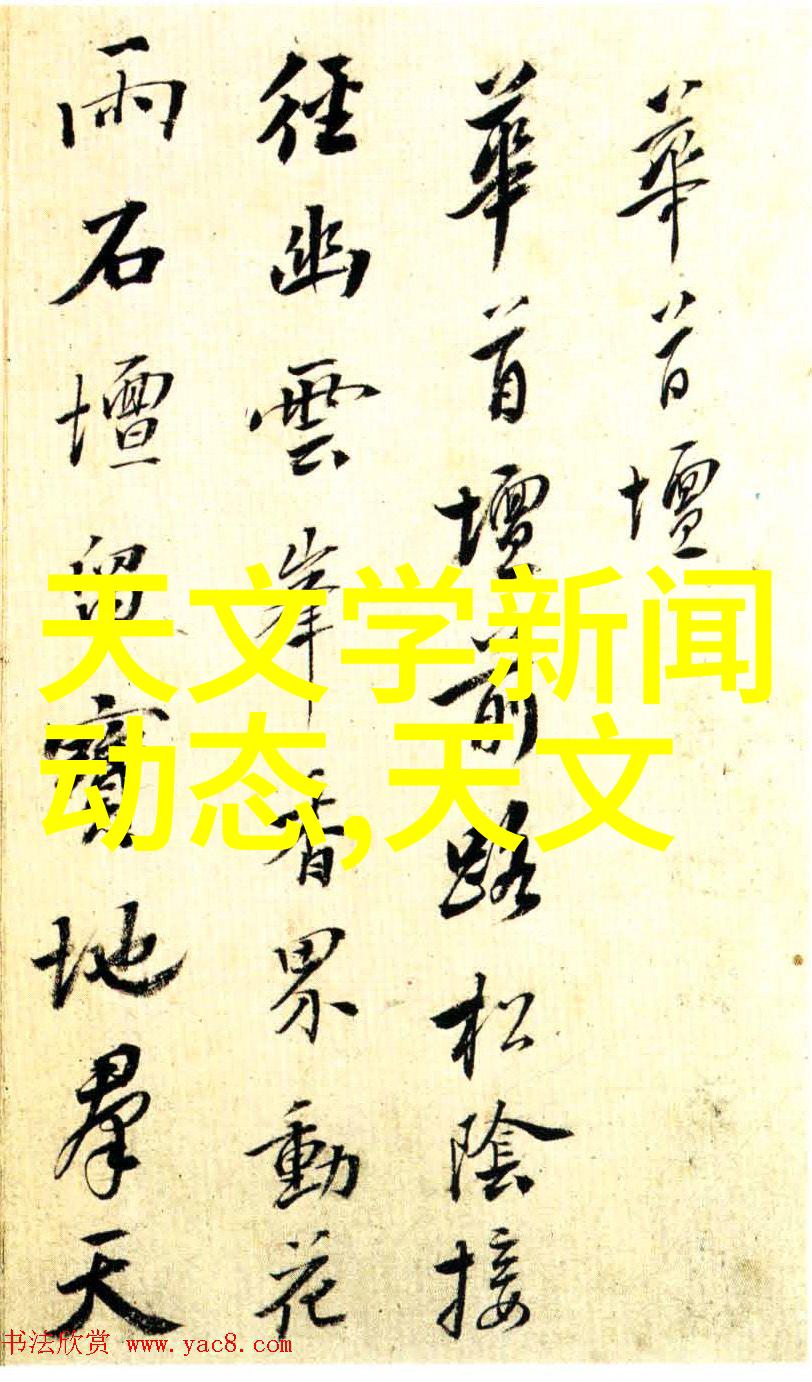 華首壇
華首壇前路松陰接
徑幽雲岸香界動花
雨石壇留寶地羣天
天文学新闻
动态,天文
书法欣赏 www.yac8.com